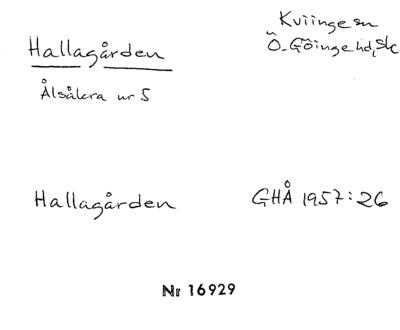 Hallagården
Kviinge sn
Ö. Göinge hd, Sk
Ålsåkra nr 5
Hallagården
GHÅ 1957:26
Nr 16929